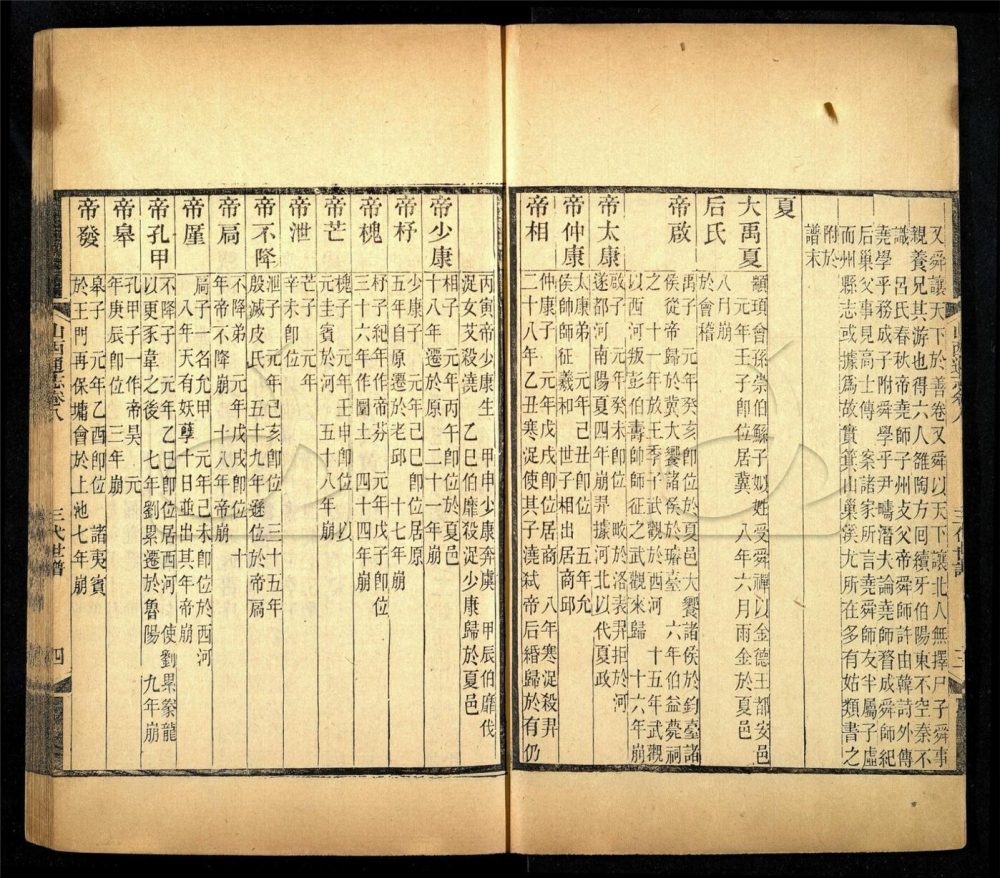 又舜讓天下於善卷又舜以天下讓北人無擇尸子舜事
親養兄其游也得六人雒陶方回續牙伯陽東不空秦不
識 呂氏春秋帝堯師子州支父帝舜師許由韓詩外傳
堯學乎務成子附舜學乎尹疇潛夫論堯師務成舜師紀
后巢父支見高士傳 案諸家所言堯舜師友半屬子虛
而州縣志或據為故實箕山巢溪尤所在多有姑類書之
附於
譜末
夏
大禹夏
顓頊曾孫崇伯鯀子姒姓受舜禪以金德王都安邑
元年壬子即位居冀 八年六月雨金於夏邑
后氏
八月崩
於會稽
帝啟
禹子 元年癸亥即位於夏邑大饗諸侯於鈞臺諸
侯從帝歸於冀大饗諸侯於璿臺 六年伯益薨祠
之 十一年放王季子武觀於西河 十五年武觀
以西河叛彭伯壽帥師征之武觀來歸 十六年崩
帝太康
啟子 元年癸未即位 畋於洛表羿拒於河
遂都河南陽夏四年崩羿據河北以代夏政
帝仲康
太康弟 元年己丑即位 五年允
侯帥師征羲和 世子相出居商邱
帝相
仲康子 元年戊戌即位居商 八年寒浞殺羿
二十八年乙丑寒浞使其子澆弒帝后緡歸於有仍
丙寅帝少康生 甲申少康奔虞 甲辰伯靡伐
浞女艾殺澆 乙巳伯靡殺浞少康歸於夏邑
帝少康
相子 元年丙午即位於夏邑
十八年遷於原 二十一年崩
帝杼
少康子 元年己巳即位居原
五年自原遷於老邱 十七年崩
帝槐
杼子紀年作帝芬 元年戊子即位
三十六年作圜土 四十四年崩
帝芒
槐子 元年壬申即位 以
元圭賓於河 五十八年崩
帝泄
芒子 元年
辛未即位
帝不降
泄子 元年己亥即位 三十五年
殷滅皮氏 五十九年遜位於帝扃
帝扃
不降弟 元年戊戌即位 十
年帝不降崩 十八年帝崩
帝厪
扃子一名允甲 元年己未即位於西河
八年天有妖孽十日並出其年帝崩
帝孔甲
不降子 元年乙巳即位居西河 使劉累豢龍
以更豕韋之後 七年劉累遷於魯陽 九年崩
帝皋
孔甲子一作帝昊 元
年庚辰即位 三年崩
帝發
皋子 元年乙酉即位 諸夷賓
於王門再保墉會於上池七年崩
山西通志卷八 三代世譜 四